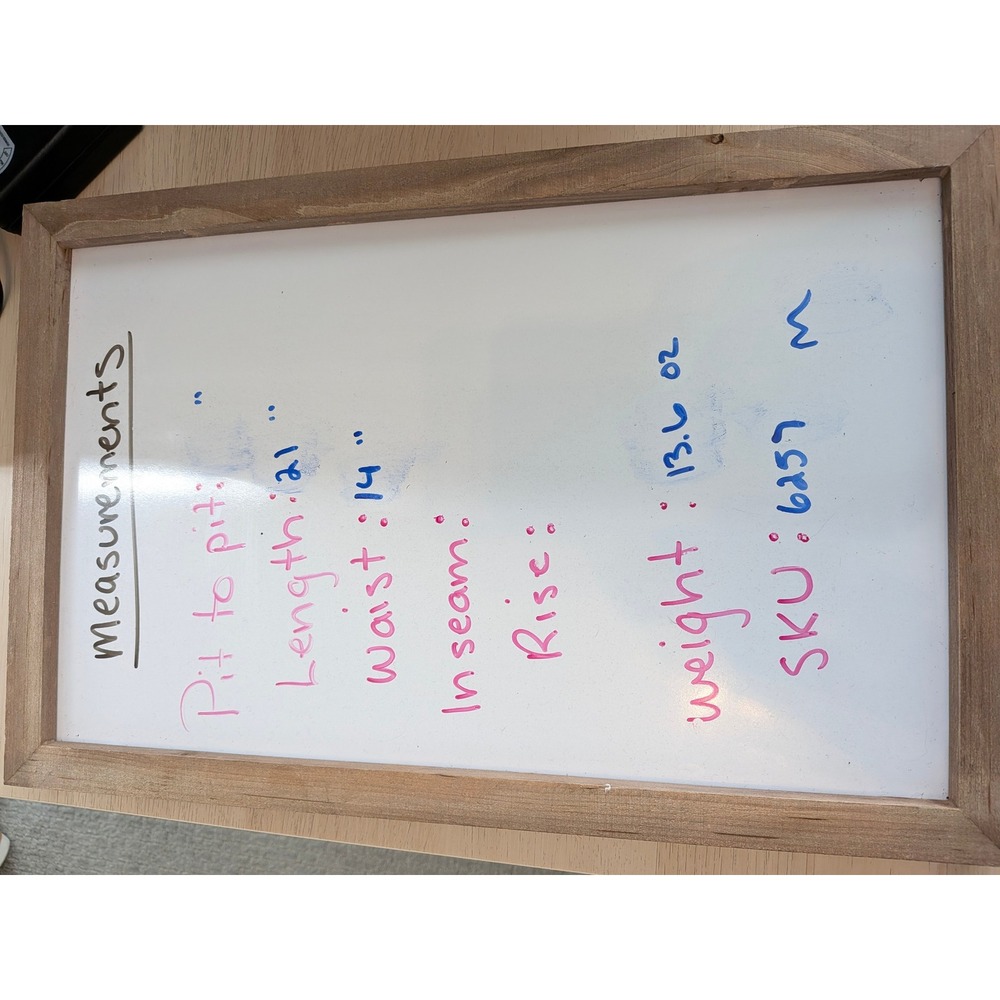 Measurements
Pit to pit: "
Length: 21 "
Waist: 14 "
Inseam:
Rise:
Weight: 13.6 oz
SKU: 6257 M